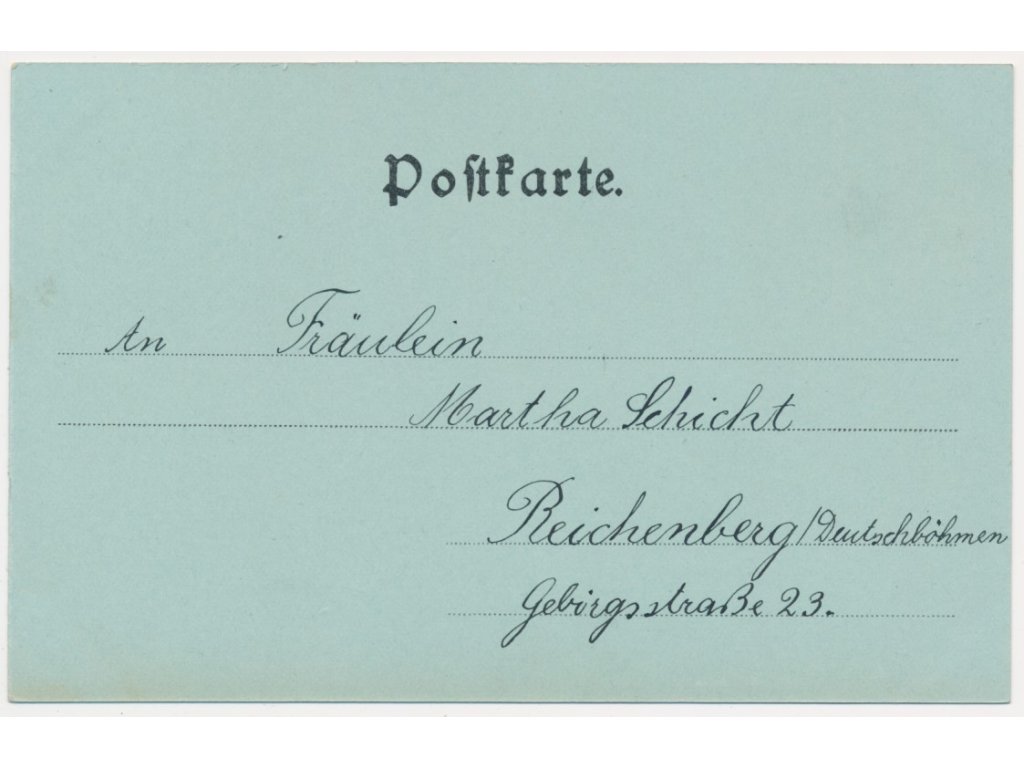 Postkarte.
An Fräulein
Martha Schicht
Reichenberg/Deutschböhmen
Gebirgsstraße 23.